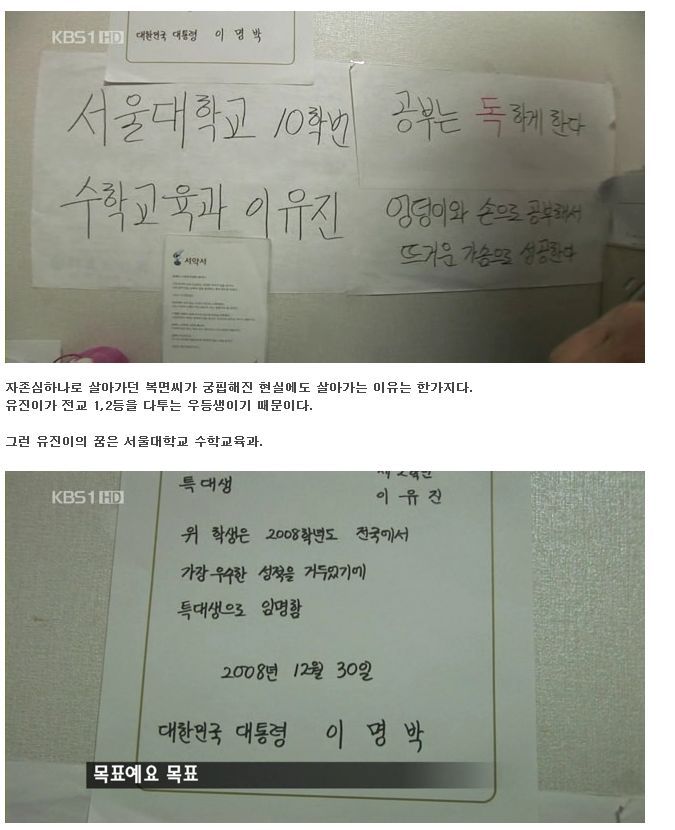 KBS1 HD
대한민국 대통령 이명박
서울대학교 10학번
수학교육과 이유진
공부는 독하게 한다
엉덩이와 손으로 공부해서
뜨거운 가슴으로 성공한다
서약서
자존심하나로 살아가던 복면씨가 궁핍해진 현실에도 살아가는 이유는 한가지다.
유진이가 전교 1,2등을 다투는 우등생이기 때문이다.
그런 유진이의 꿈은 서울대학교 수학교육과.
KBS1 HD
특대생
이유진
위 학생은 2008학년도 전국에서
가장 우수한 성적을 거두었기에
특대생으로 임명함
2008년 12월 30일
대한민국 대통령 이명박
목표예요 목표